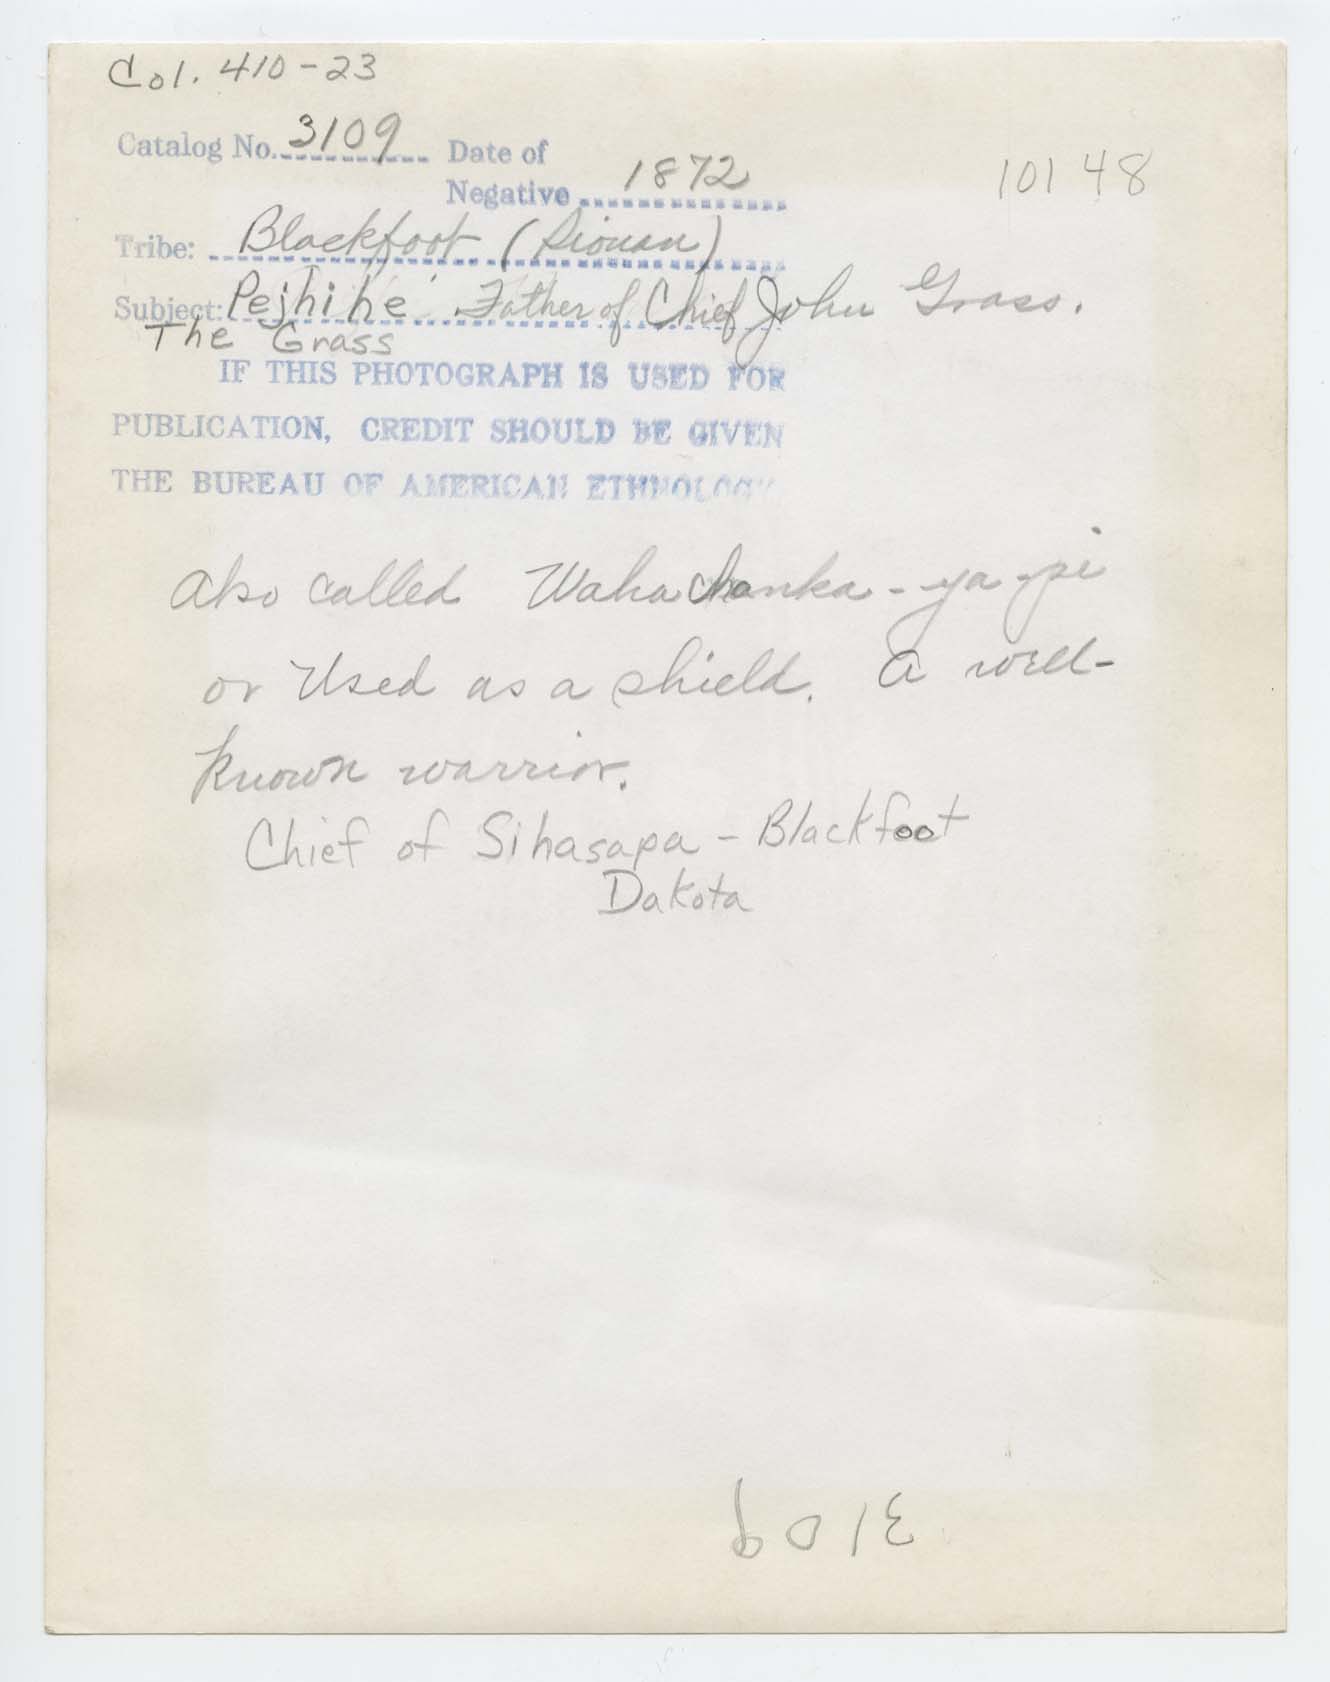 Col. 410-23
Catalog No. 3109 Date of
Negative 1872
101 48
Tribe: Blackfoot (Siouan)
Subject: Pejhihe' Father of Chief John Grass.
The Grass
IF THIS PHOTOGRAPH IS USED FOR
PUBLICATION, CREDIT SHOULD BE GIVEN
THE BUREAU OF AMERICAN ETHNOLOGY
Also called Wahachanka-ya-pi
or Used as a shield. A well-
known warrior.
Chief of Sihasapa - Blackfoot
Dakota
3109